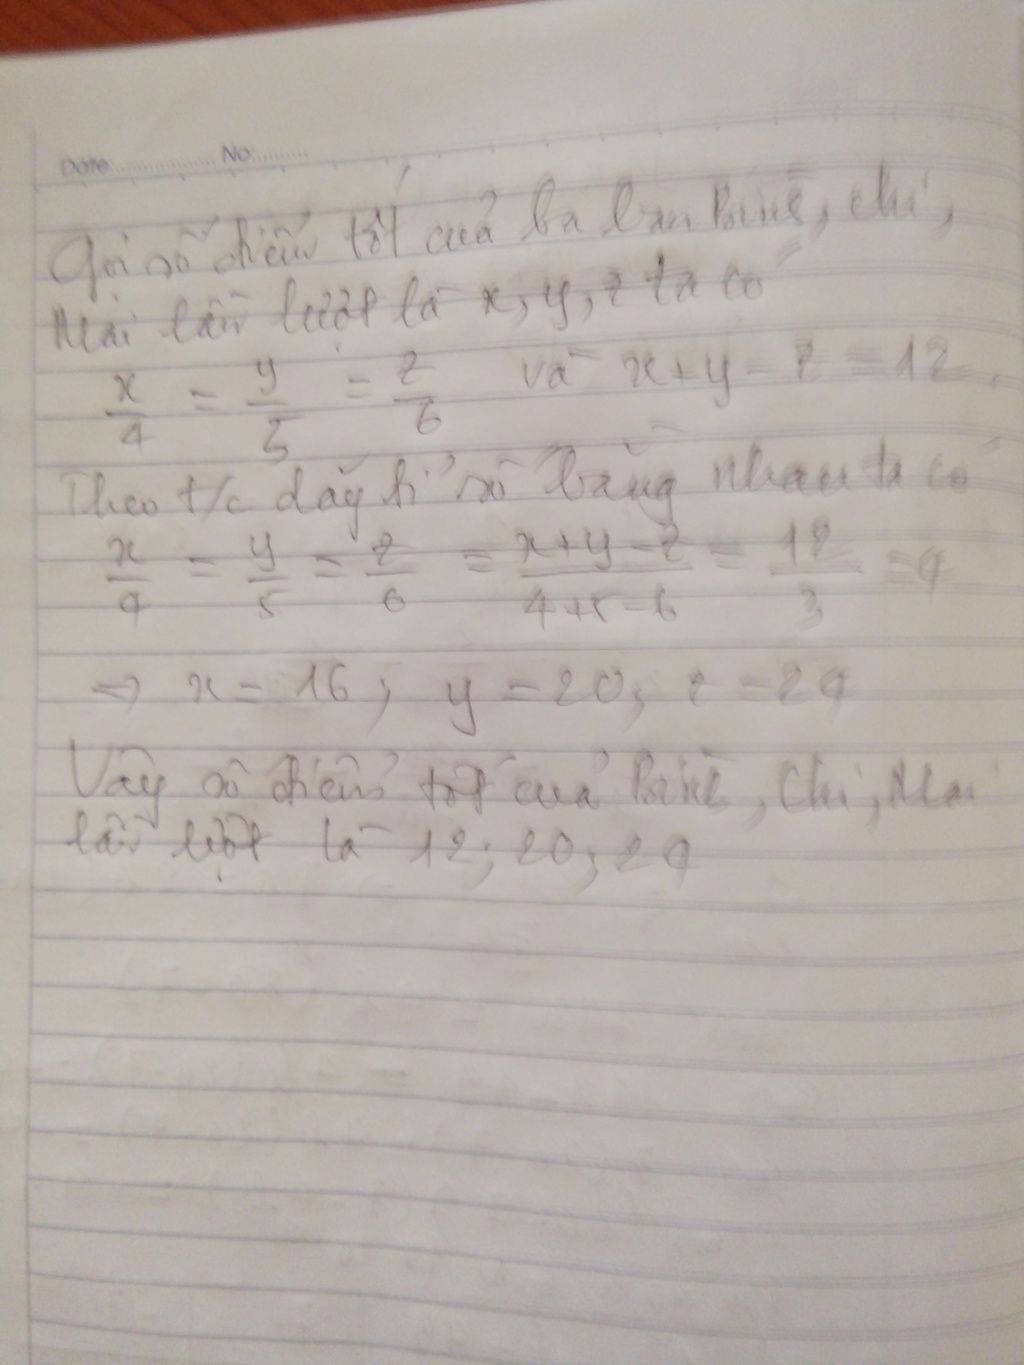 Date: No:
Gọi số điểm tốt của ba bạn Bình, Chi,
Mai lần lượt là x, y, z ta có
x/4 = y/5 = z/6 và x+y-z = 12.
Theo t/c dãy tỉ số bằng nhau ta có
x/4 = y/5 = z/6 = x+y-z/4+5-6 = 12/3 = 4
=> x = 16; y = 20; z = 24
Vậy số điểm tốt của Bình, Chi, Mai
lần lượt là 12; 20; 24